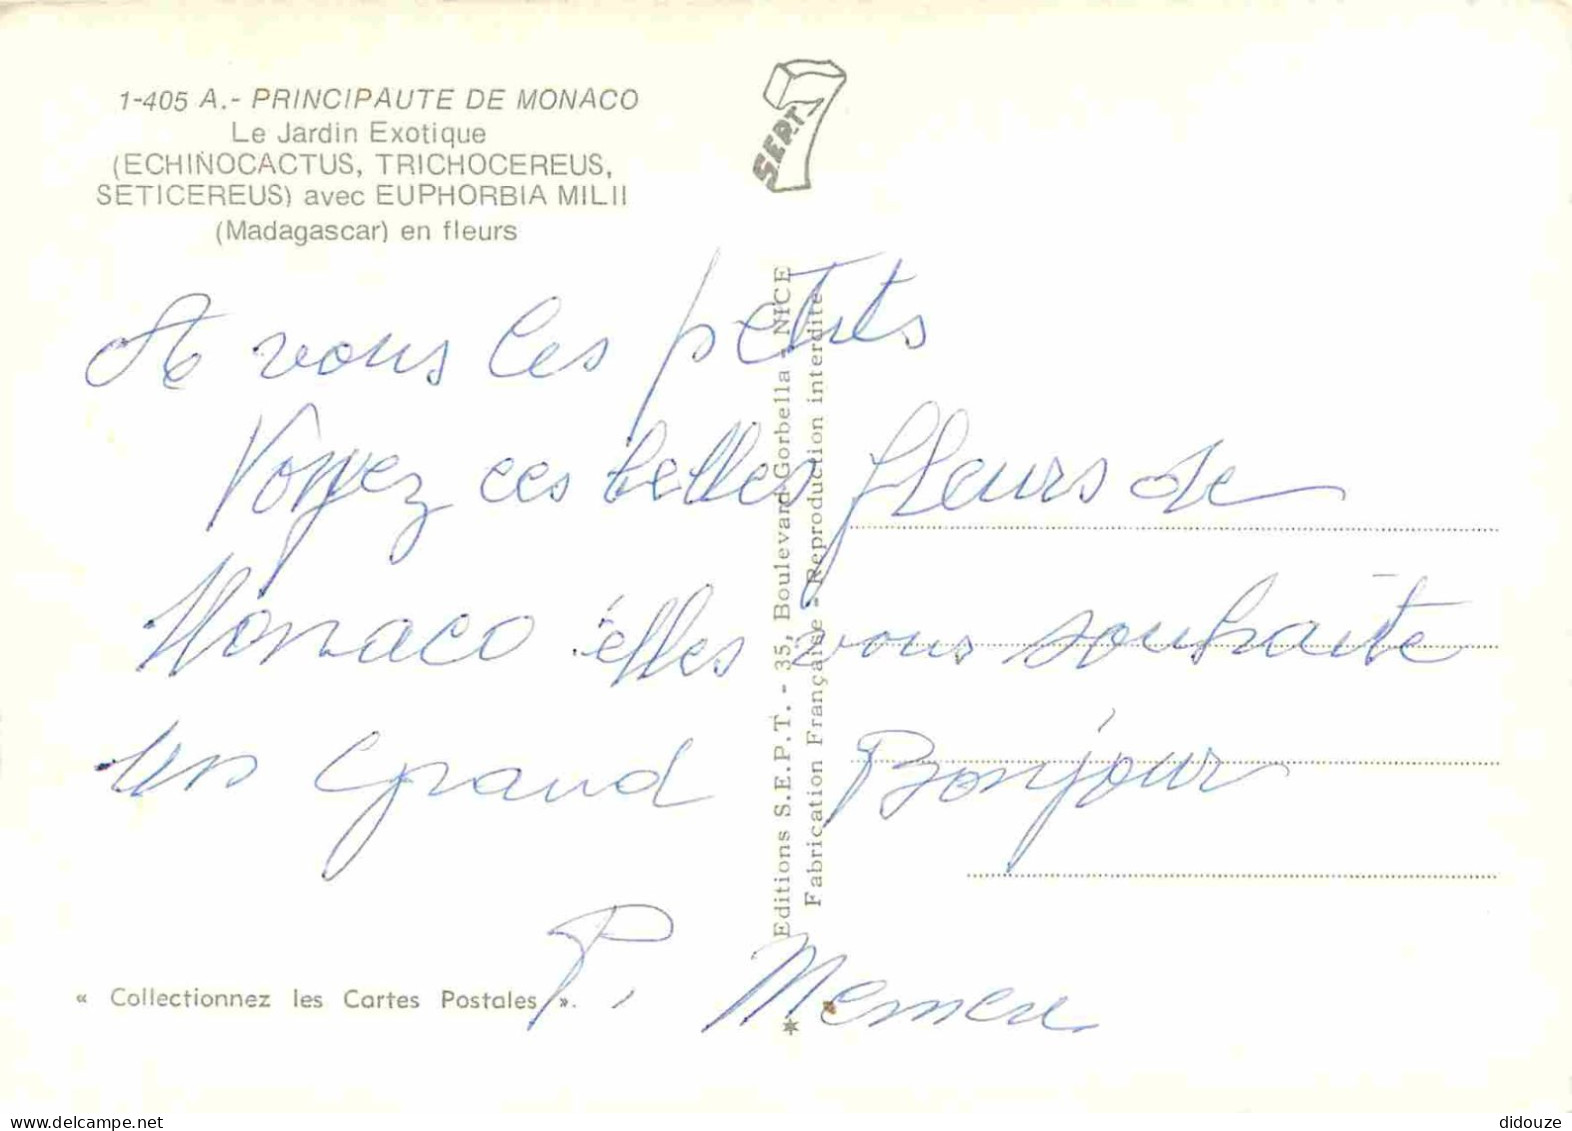 1-405 A.- PRINCIPAUTE DE MONACO
Le Jardin Exotique
(ECHINOCACTUS, TRICHOCEREUS,
SETICEREUS) avec EUPHORBIA MILII
(Madagascar) en fleurs
7
S.E.P.T.
A vous les petits
Voyez ces belles fleurs de
Monaco elles vous souhaite
un grand Bonjour
P.
Editions S.E.P.T. - 35, Boulevard Gorbella - NICE
Fabrication Française - Reproduction interdite
« Collectionnez les Cartes Postales ».
delcampe.net
didouze